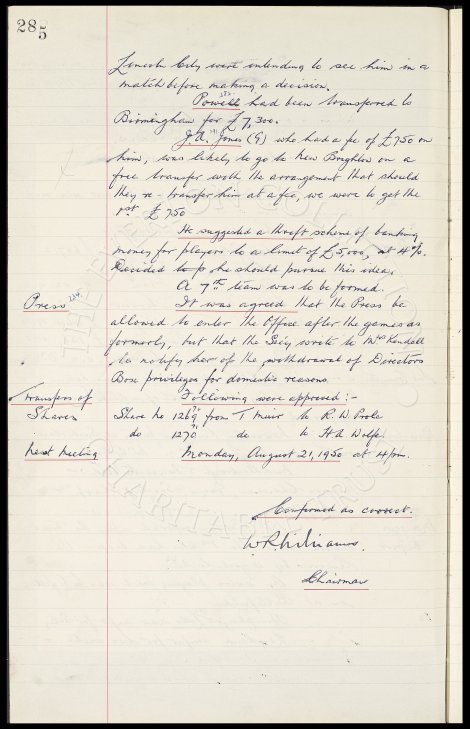 285
Lincoln City were intending to see him in a
match before making a decision.
Powell had been transferred to
Birmingham for £7,300.
J.A. Jones (G) who had a fee of £750 on
him, was likely to go to New Brighton on a
free transfer with the arrangement that should
they re-transfer him at a fee, we were to get the
1st £750
He suggested a thrift scheme of banking
money for players to a limit of £5,000, at 4%.
Decided he should pursue this idea.
A 7th team was to be formed.
Press It was agreed that the Press be
allowed to enter the Office after the games as
formerly, but that the Secy wrote to Mrs Kendall
to notify her of the withdrawal of Directors
Box privileges for domestic reasons.
Transfers of Following were approved:-
Shares Share No 1269 from T. Muir to R. W. Prole
do 1270 do to H A Wolfe
Next Meeting Monday, August 21, 1950 at 4 pm.
Confirmed as correct.
W.R. Williams.
Chairman
THE EVERTON COLLECTION
CHARITABLE TRUST